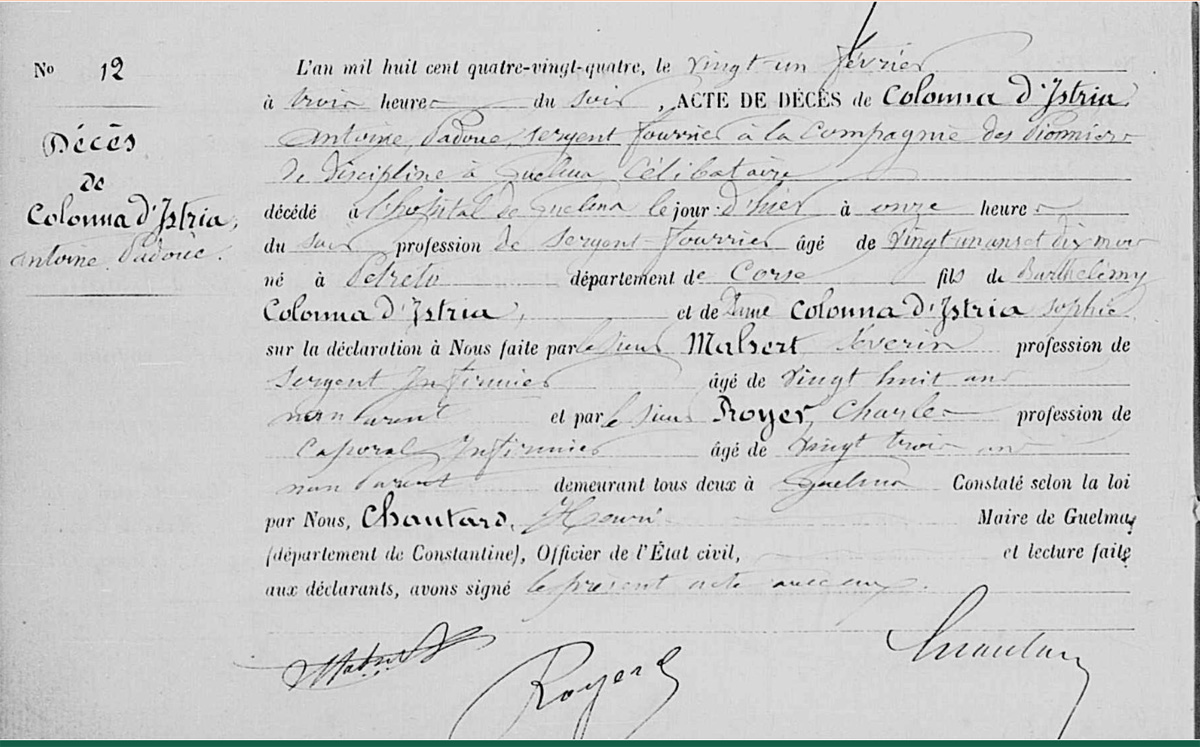 No 12
Décès
de
Colonna d'Istria,
Antoine Padoue.
L'an mil huit cent quatre-vingt-quatre, le vingt un février
à trois heures du soir, ACTE DE DÉCÈS de Colonna d'Istria
Antoine, Padoue, sergent fourrier à la Compagnie des Pionniers
de discipline à Guelma Célibataire
décédé à l'hôpital de Guelma le jour d'hier à onze heures
du soir profession de sergent-fourrier âgé de vingt un ans et dix mois
né à Petreto département de Corse fils de Barthélémy
Colonna d'Istria, et de Dame Colonna d'Istria Sophie
sur la déclaration à Nous faite par le sieur Mabert Séverin profession de
Sergent Infirmier âgé de vingt huit ans
non parent et par le sieur Royer, Charles profession de
Caporal Infirmier âgé de vingt trois ans
non parent demeurant tous deux à Guelma Constaté selon la loi
par Nous, Chautard, Henri Maire de Guelma,
(département de Constantine), Officier de l'État civil, et lecture faite
aux déclarants, avons signé le présent acte avec eux.
Mabert
Royer
Chautard